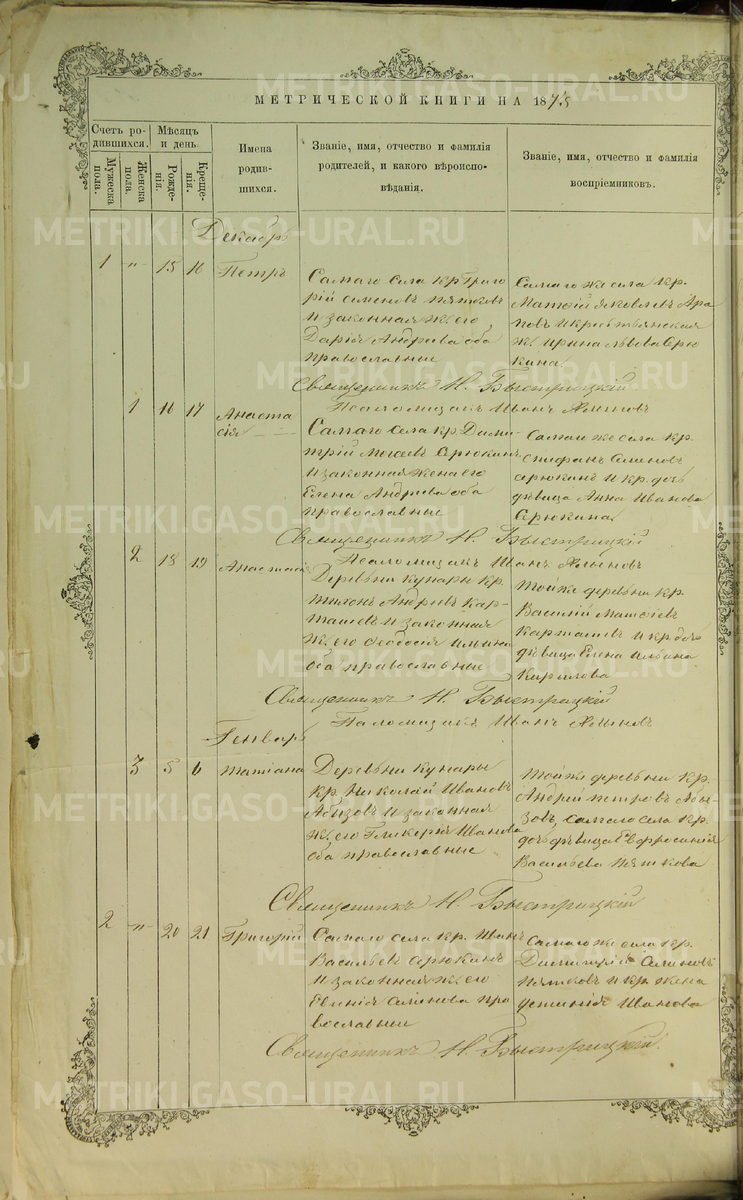 МЕТРИЧЕСКОЙ КНИГИ НА 1875
Счетъ родившихся.
Мужеска пола.
Женска пола.
Мѣсяцъ и день.
Рожденія.
Крещенія.
Имена родившихся.
Званіе, имя, отчество и фамилія родителей, и какого вѣроисповѣданія.
Званіе, имя, отчество и фамилія воспріемниковъ.
Декабрь
1 „ 15 16 Петръ
Самаго села кр. Григо
рій Семеновъ Пятковъ
и законная ж. его
Дарія Андреева оба
православные
Самаго же села кр.
Матѳій Яковлевъ Ара
повъ и крестьянская
ж. Ирина Львова Сѣрю
кина.
Священникъ Н. Быстрицкій
Псаломщикъ Иванъ
1 16 17 Анаста
сія
Самаго села кр. Дими-
трій Моѵсеевъ Сѣрюкинъ
и законная жена его
Елена Андреева оба
православные
Самаго же села кр.
Епифанъ Семеновъ
Сѣрюкинъ и кр. дочь
дѣвица Анна Иванова
Сѣрюкина
Священникъ Н. Быстрицкій
Псаломщикъ Иванъ
2 18 19 Анастасія
Деревни Кунары кр.
Тихонъ Андреевъ Кар-
ташевъ и законная
ж. его Ѳеодосія Ильина
оба православные
Тойже деревни кр.
Василій Матѳіевъ
Карташевъ и кр. дочь
дѣвица Елена Ильина
Кирилова
Священникъ Н. Быстрицкій
Псаломщикъ Иванъ
Генварь
3 5 6 Татіана
Деревни Кунары
кр. Николай Ивановъ
Абызовъ и законная
ж. его Гликерія Иванова
оба православные
Тойже деревни кр.
Андрей Петровъ Абы-
зовъ, самаго села кр.
дочь дѣвица Евфросинія
Васильева Пяткова
Священникъ Н. Быстрицкій
2 „ 20 21 Григорій
Самаго села кр. Иванъ
Васильевъ Сѣрюкинъ
и законная ж. его
Евгенія Семенова пра
вославные
Самаго же села кр.
Димитрій Семеновъ
Пятковъ и кр. жена
Устинія Иванова
Священникъ Н. Быстрицкій.
METRIKI.GASO-URAL.RU